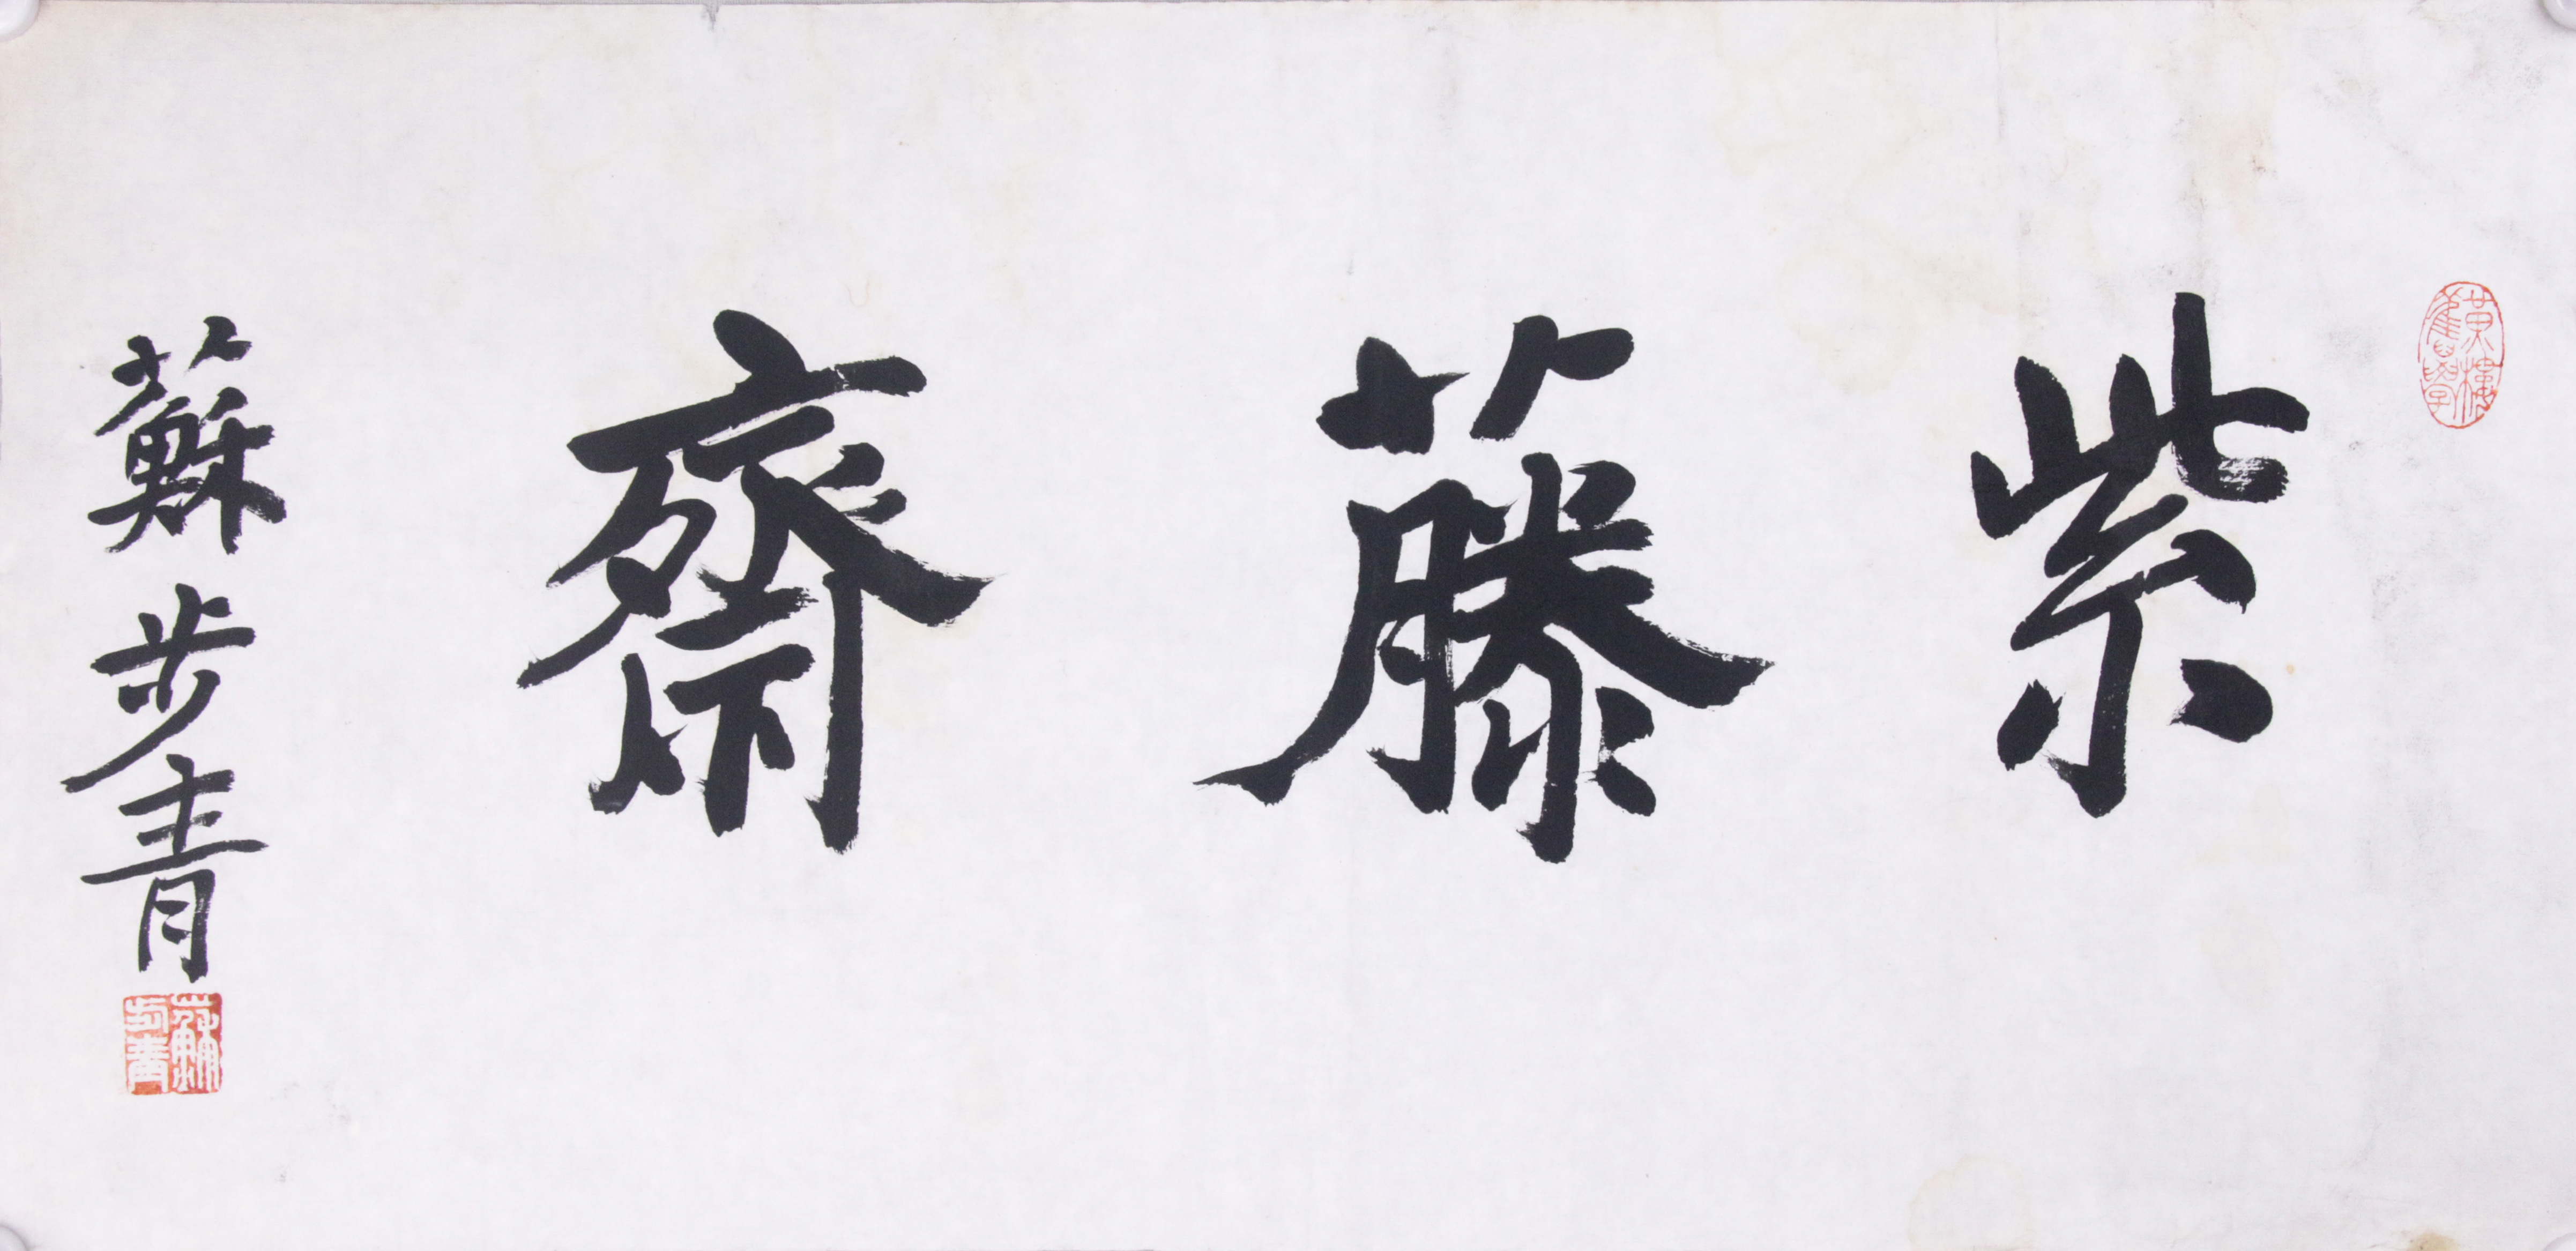 紫藤齋
蘇步青
蘇步青